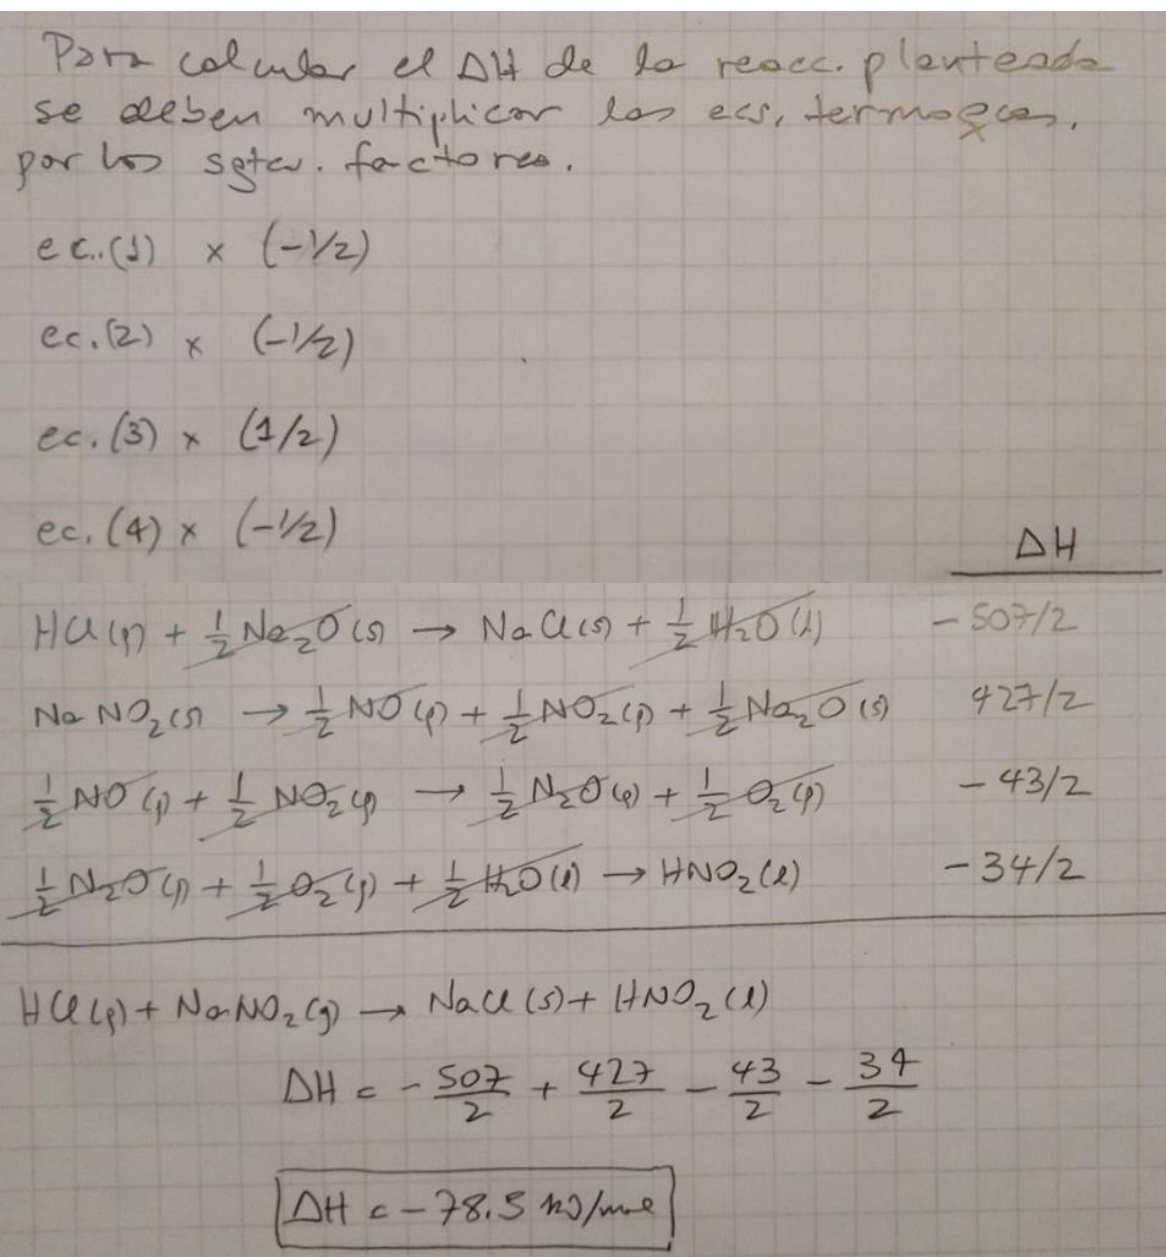 Para calcular el ΔH de la reacc. planteada
se deben multiplicar las ecs. termoqcas.
por los sgtes. factores.
ec.(1) x (-1/2)
ec.(2) x (-1/2)
ec.(3) x (1/2)
ec.(4) x (-1/2)
ΔH
HCl(g) + 1/2 Na₂O(s) → NaCl(s) + 1/2 H₂O(l) -507/2
NaNO₂(s) → 1/2 NO(g) + 1/2 NO₂(g) + 1/2 Na₂O(s) 427/2
1/2 NO(g) + 1/2 NO₂(g) → 1/2 N₂O(g) + 1/2 O₂(g) -43/2
1/2 N₂O(g) + 1/2 O₂(g) + 1/2 H₂O(l) → HNO₂(l) -34/2
HCl(g) + NaNO₂(g) → NaCl(s) + HNO₂(l)
ΔH = -507/2 + 427/2 - 43/2 - 34/2
ΔH = -78.5 kJ/mol